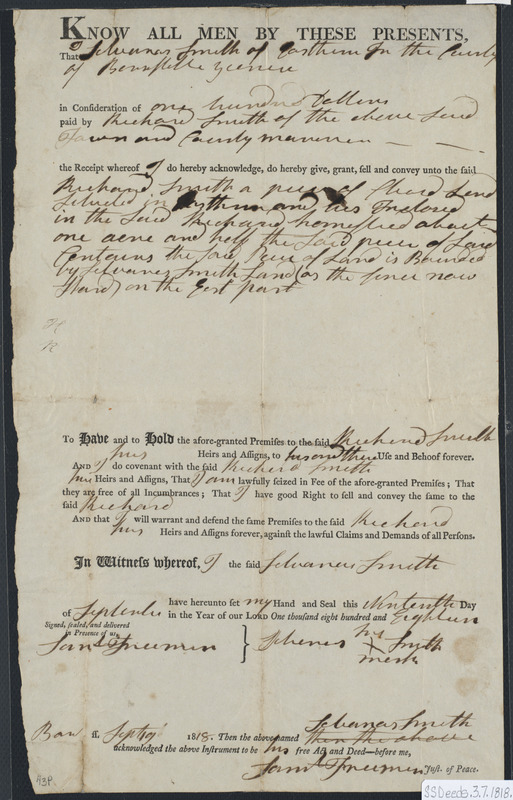 KNOW ALL MEN BY THESE PRESENTS,
That I Selvanas Smith of Easthem In the County
of Bernstelle yeomen
in Consideration of one hundred Dollers
paid by Richard Smith of the above Sied
Town and County
the Receipt whereof I do hereby acknowledge, do hereby give, grant, sell and convey unto the said
Richard Smith a piece of Land
in and lies Inclosed
in the Sied Richard homested about
one acre and half the Said piece of Land
Contains the Said piece of Land is Bounded
by Selvanas Smith Land as the fence now
Stand on the Est part
To Have and to Hold the afore-granted Premiſes to the said Richard Smith
his Heirs and Aſſigns, to his and their Uſe and Behoof forever.
AND I do covenant with the ſaid Richard Smith
his Heirs and Aſſigns, That I am lawfully ſeized in Fee of the afore-granted Premiſes; That
they are free of all Incumbrances; That I have good Right to ſell and convey the ſame to the
ſaid Richard
AND that I will warrant and defend the ſame Premiſes to the ſaid Richard
his Heirs and Aſſigns forever, againſt the lawful Claims and Demands of all Perſons.
In Witneſs whereof, I the ſaid Selvanas Smith
have hereunto ſet my Hand and Seal this Nintenth Day
of September in the Year of our LORD One thouſand eight hundred and Eighteen
Signed, ſealed, and delivered
in Preſence of us,
Saml Freemen } his Smith
X
mark
Selvanas Smith
Barn ſſ. Sept 19 1818. Then the above named then the above
acknowledged the above Inſtrument to be his free Act and Deed—before me,
Saml Freemen Juſt. of Peace.
A3P.
SSDeeds.3.7.1818.